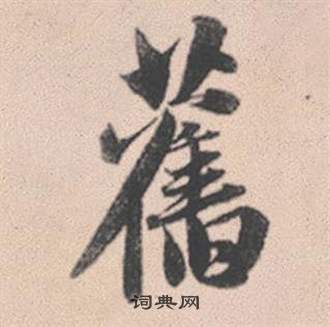 舊
词典网